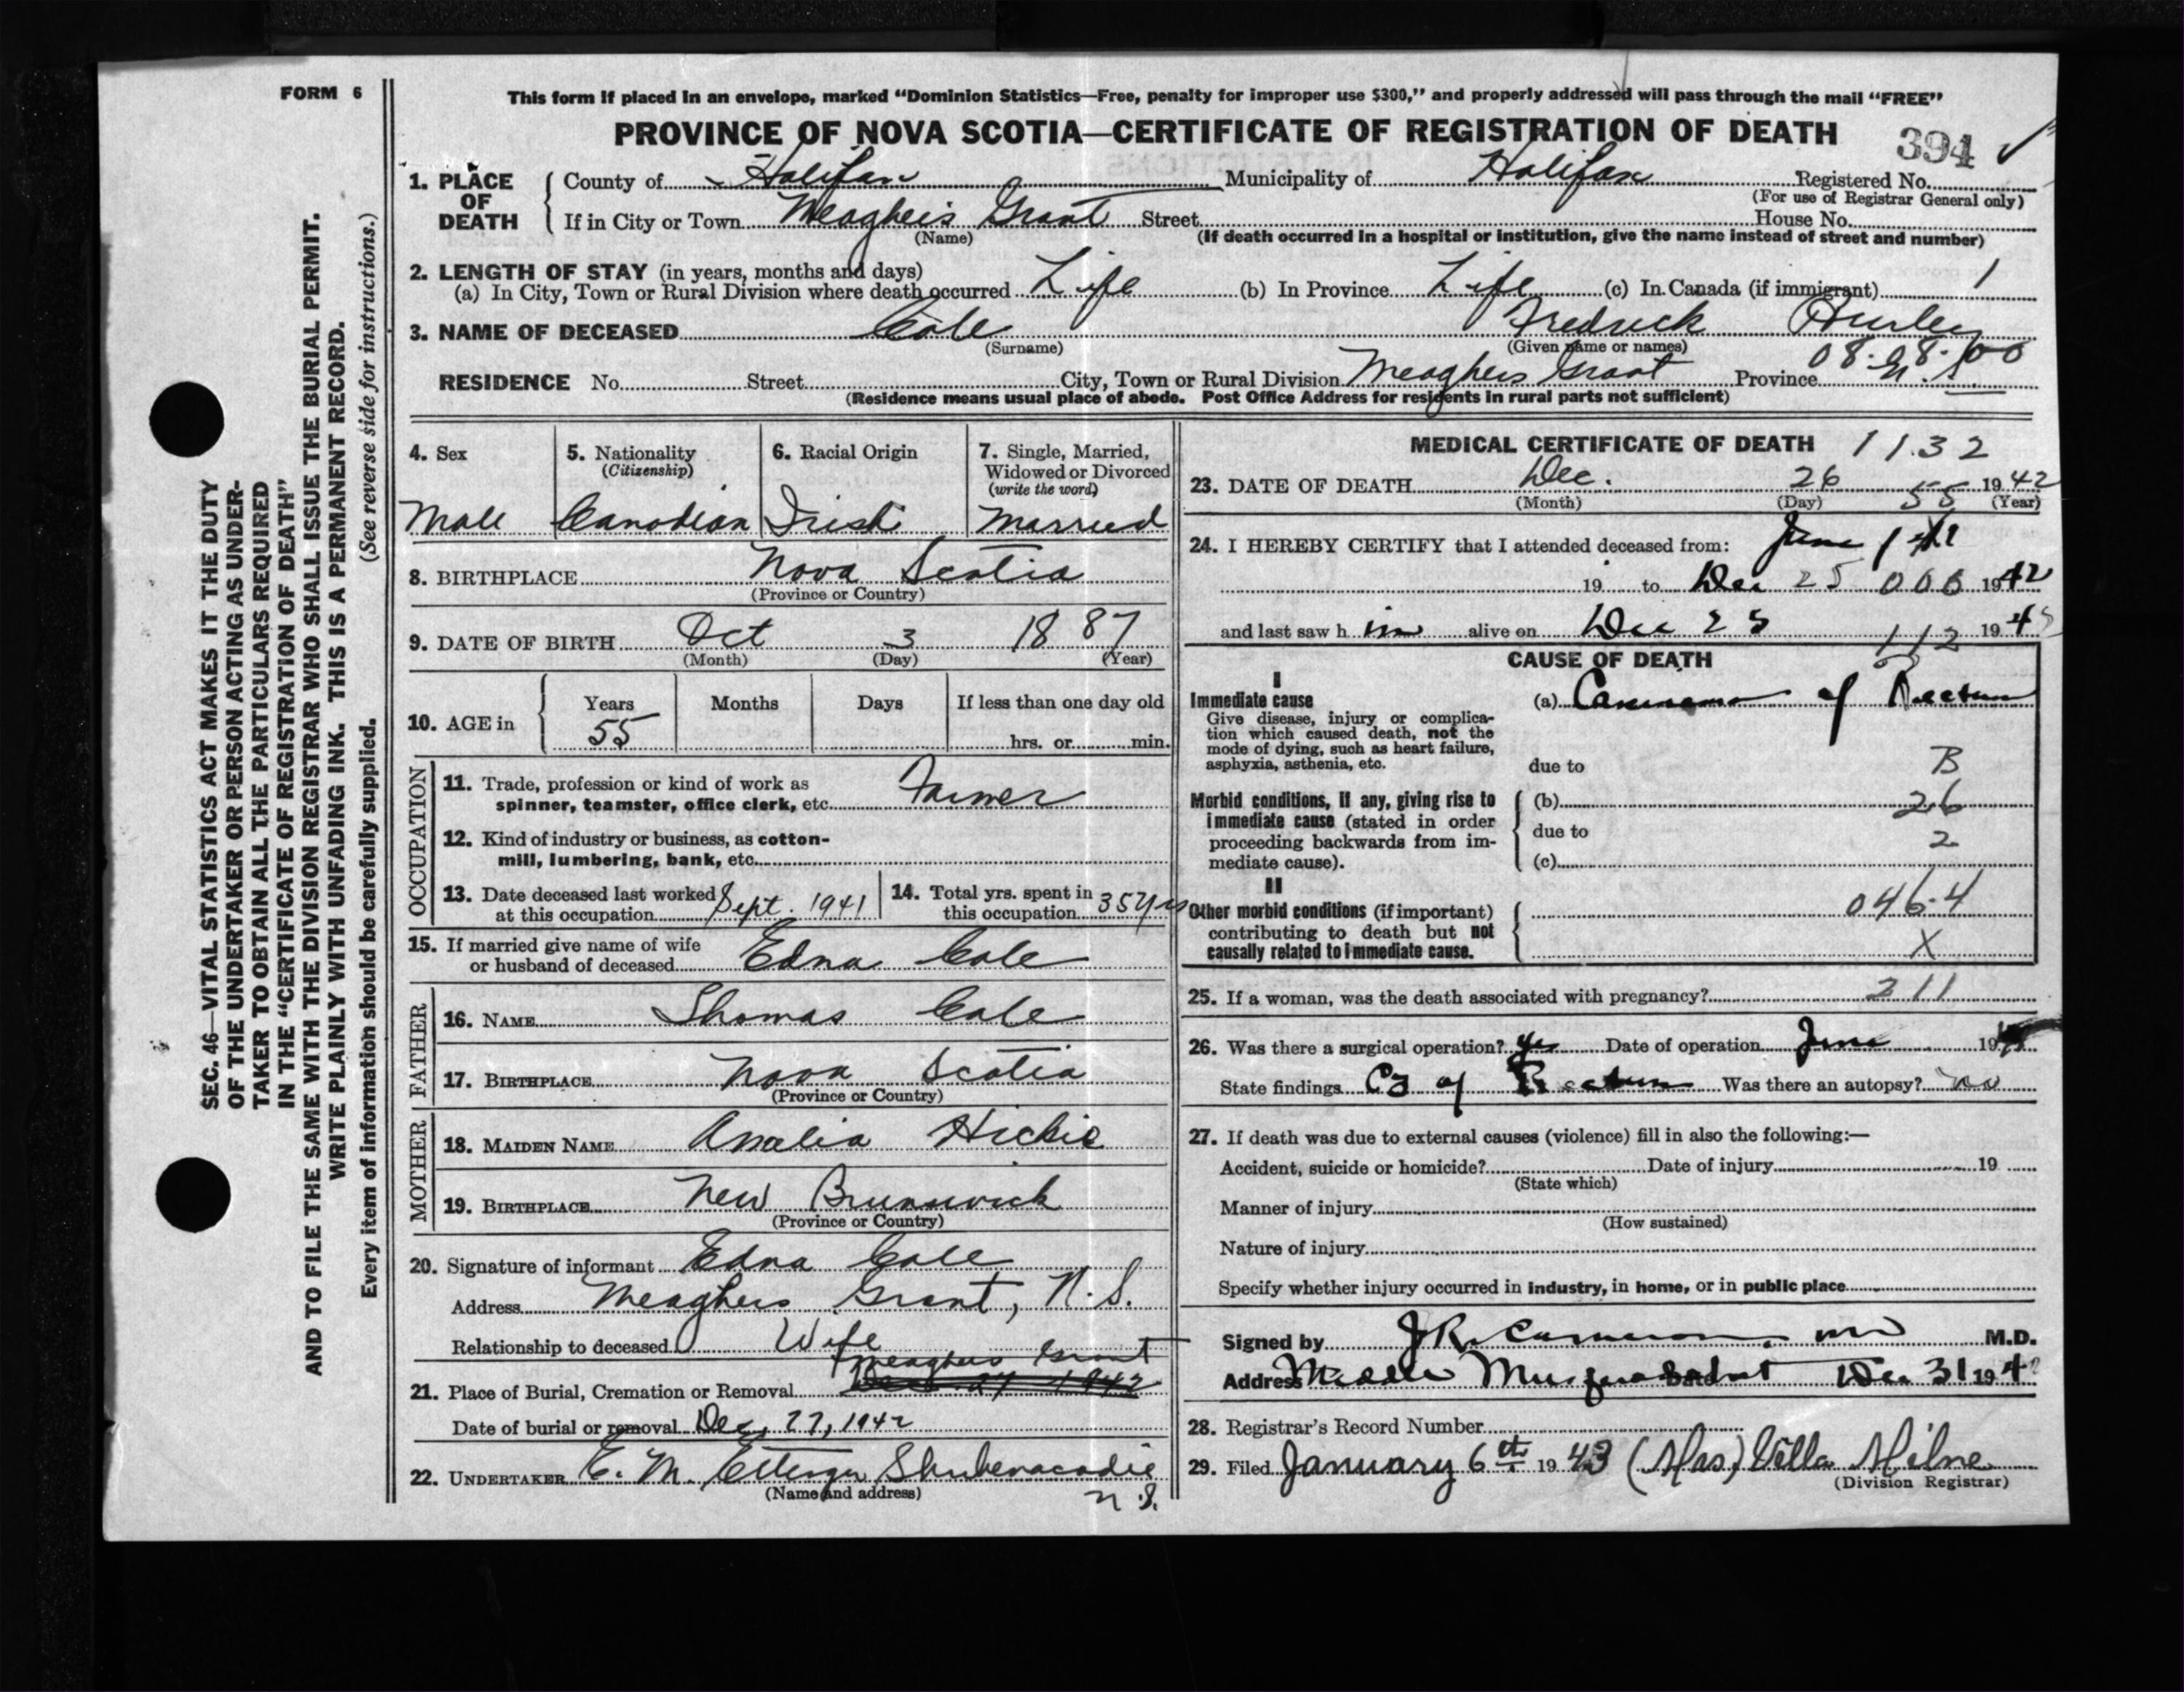 FORM 6
SEC. 46—VITAL STATISTICS ACT MAKES IT THE DUTY
OF THE UNDERTAKER OR PERSON ACTING AS UNDER-
TAKER TO OBTAIN ALL THE PARTICULARS REQUIRED
IN THE "CERTIFICATE OF REGISTRATION OF DEATH"
AND TO FILE THE SAME WITH THE DIVISION REGISTRAR WHO SHALL ISSUE THE BURIAL PERMIT.
WRITE PLAINLY WITH UNFADING INK. THIS IS A PERMANENT RECORD.
Every item of information should be carefully supplied. (See reverse side for instructions.)
This form if placed in an envelope, marked "Dominion Statistics—Free, penalty for improper use $300," and properly addressed will pass through the mail "FREE"
PROVINCE OF NOVA SCOTIA—CERTIFICATE OF REGISTRATION OF DEATH 394
1. PLACE OF DEATH County of Halifax Municipality of Halifax Registered No.
(For use of Registrar General only)
If in City or Town Meagheis Grant Street House No.
(Name) (If death occurred in a hospital or institution, give the name instead of street and number)
2. LENGTH OF STAY (in years, months and days)
(a) In City, Town or Rural Division where death occurred Life (b) In Province Life (c) In Canada (if immigrant) 1
3. NAME OF DECEASED Cole Fredrick
(Surname) (Given name or names)
08-98-00
RESIDENCE No. Street City, Town or Rural Division Meaghers Grant Province N.S.
(Residence means usual place of abode. Post Office Address for residents in rural parts not sufficient)
4. Sex 5. Nationality (Citizenship) 6. Racial Origin 7. Single, Married, Widowed or Divorced (write the word)
Male Canadian Irish Married
8. BIRTHPLACE Nova Scotia
(Province or Country)
9. DATE OF BIRTH Oct 3 1887
(Month) (Day) (Year)
10. AGE in Years Months Days If less than one day old
55 hrs. or min.
OCCUPATION
11. Trade, profession or kind of work as
spinner, teamster, office clerk, etc. Farmer
12. Kind of industry or business, as cotton-
mill, lumbering, bank, etc.
13. Date deceased last worked at this occupation Sept. 1941 14. Total yrs. spent in this occupation 35 yrs
15. If married give name of wife
or husband of deceased Edna Cole
FATHER
16. NAME Thomas Cole
17. BIRTHPLACE Nova Scotia
(Province or Country)
MOTHER
18. MAIDEN NAME Amalia Hickie
19. BIRTHPLACE New Brunswick
(Province or Country)
20. Signature of informant Edna Cole
Address Meaghers Grant, N.S.
Relationship to deceased Wife
Meaghers Grant
21. Place of Burial, Cremation or Removal Dec 27 1942
Date of burial or removal Dec, 27, 1942
22. UNDERTAKER E. M. Ettinger Shubenacadie
(Name and address) N.S.
MEDICAL CERTIFICATE OF DEATH 1132
23. DATE OF DEATH Dec. 26 55 1942
(Month) (Day) (Year)
24. I HEREBY CERTIFY that I attended deceased from: June
19 to Dec 25 000 1942
and last saw h im alive on Dec 25 112 194
CAUSE OF DEATH
I
Immediate cause (a) Carcinoma of Rectum
Give disease, injury or complica-
tion which caused death, not the
mode of dying, such as heart failure,
asphyxia, asthenia, etc. due to B
Morbid conditions, if any, giving rise to (b) 26
immediate cause (stated in order due to 2
proceeding backwards from im-
mediate cause). (c)
II
Other morbid conditions (if important) 046.4
contributing to death but not
causally related to immediate cause. X
25. If a woman, was the death associated with pregnancy? 211
26. Was there a surgical operation? yes Date of operation June 19
State findings Ca of Rectum Was there an autopsy? no
27. If death was due to external causes (violence) fill in also the following:—
Accident, suicide or homicide? Date of injury 19
(State which)
Manner of injury
(How sustained)
Nature of injury
Specify whether injury occurred in industry, in home, or in public place
Signed by J R Cameron MD M.D.
Address Middle Musquodoboit Dec 31 194
28. Registrar's Record Number
29. Filed January 6th 1943 (Mrs) Villa Milne
(Division Registrar)